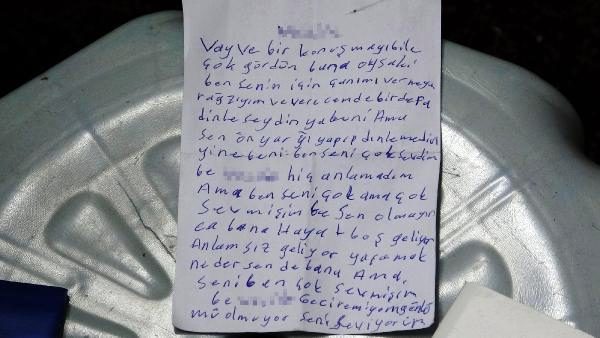 Vay ve bir konuşmayıbile
çok gördün bana oysaki
ben senin için canımı vermeye
razıyım ve
dinleseydin ya beni Ama
Sen ön yargı yapıp dinlemedin
yine beni ben seni çok sevdim
be hiç anlamadım
Ama ben seni çok ama çok
Sevmişim be Sen olmayın
ca bana Hayat boş geliyor
Anlamsız geliyor yaşamak
nedersen de bana Ama,
Seni ben çok sevmişim
be
olmuyor Seni Seviyorum